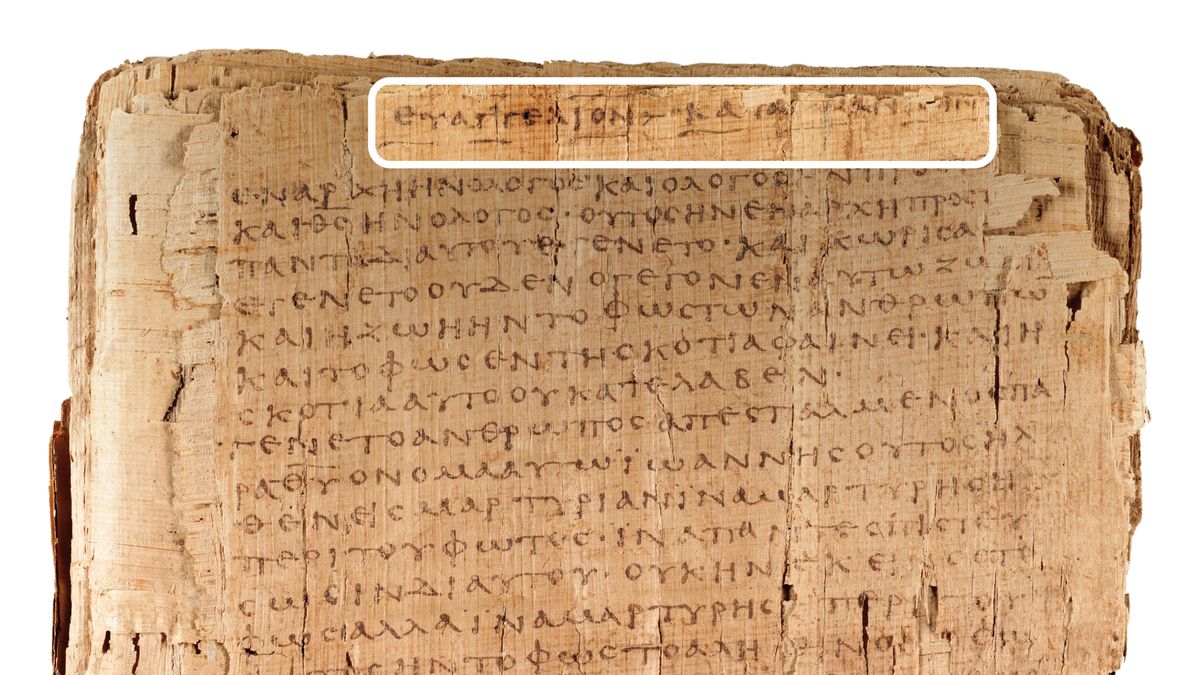 ΕΥΑΓΓΕΛΙΟΝ ΚΑΤΑ
ΕΝΑΡΧΗΗΝΟΛΟΓΟϹΚΑΙΟΛΟΓΟϹΗΝΠΡΟ
ΚΑΙΘ̅Ϲ̅ΗΝΟΛΟΓΟϹ·ΟΥΤΟϹΗΝΕΝΑΡΧΗΠΡΟϹΤ
ΠΑΝΤΑΔΙΑΥΤΟΥΕΓΕΝΕΤΟ·ΚΑΙΧΩΡΙϹΑ
ΕΓΕΝΕΤΟΟΥΔΕΝΟΓΕΓΟΝΕΝΕΝΑΥΤΩΖΩ
ΚΑΙΗΖΩΗΗΝΤΟΦΩϹΤΩΝΑΝΘΡΩΠΩ
ΚΑΙΤΟΦΩϹΕΝΤΗϹΚΟΤΙΑΦΑΙΝΕΙ·ΚΑΙΗ
ϹΚΟΤΙΑΑΥΤΟΟΥΚΑΤΕΛΑΒΕΝ·
ΓΕΝΕΤΟΑΝΘΡΩΠΟϹΑΠΕϹΤΑΛΜΕΝΟϹΠΑ
ΡΑΘ̅Υ̅ΟΝΟΜΑΑΥΤΩΪΩΑΝΝΗϹΟΥΤΟϹΗΛ
ΘΕΝΕΙϹΜΑΡΤΥΡΙΑΝΪΝΑΜΑΡΤΥΡΗϹΗ
ΠΕΡΙΤΟΥΦΩΤΟϹ·ΪΝΑΠΑΝΤΕϹΠΙϹΤΕΥ
ϹΩϹΙΝΔΙΑΥΤΟΥ·ΟΥΚΗΝΕΚΕΙΝΟϹΤΟ
ΦΩϹΑΛΛΑΪΝΑΜΑΡΤΥΡΗϹΗΠΕΡΙΤΟΥ
ΗΝΤΟΦΩϹΤΟΑΛΗΘΙΝΟΝ